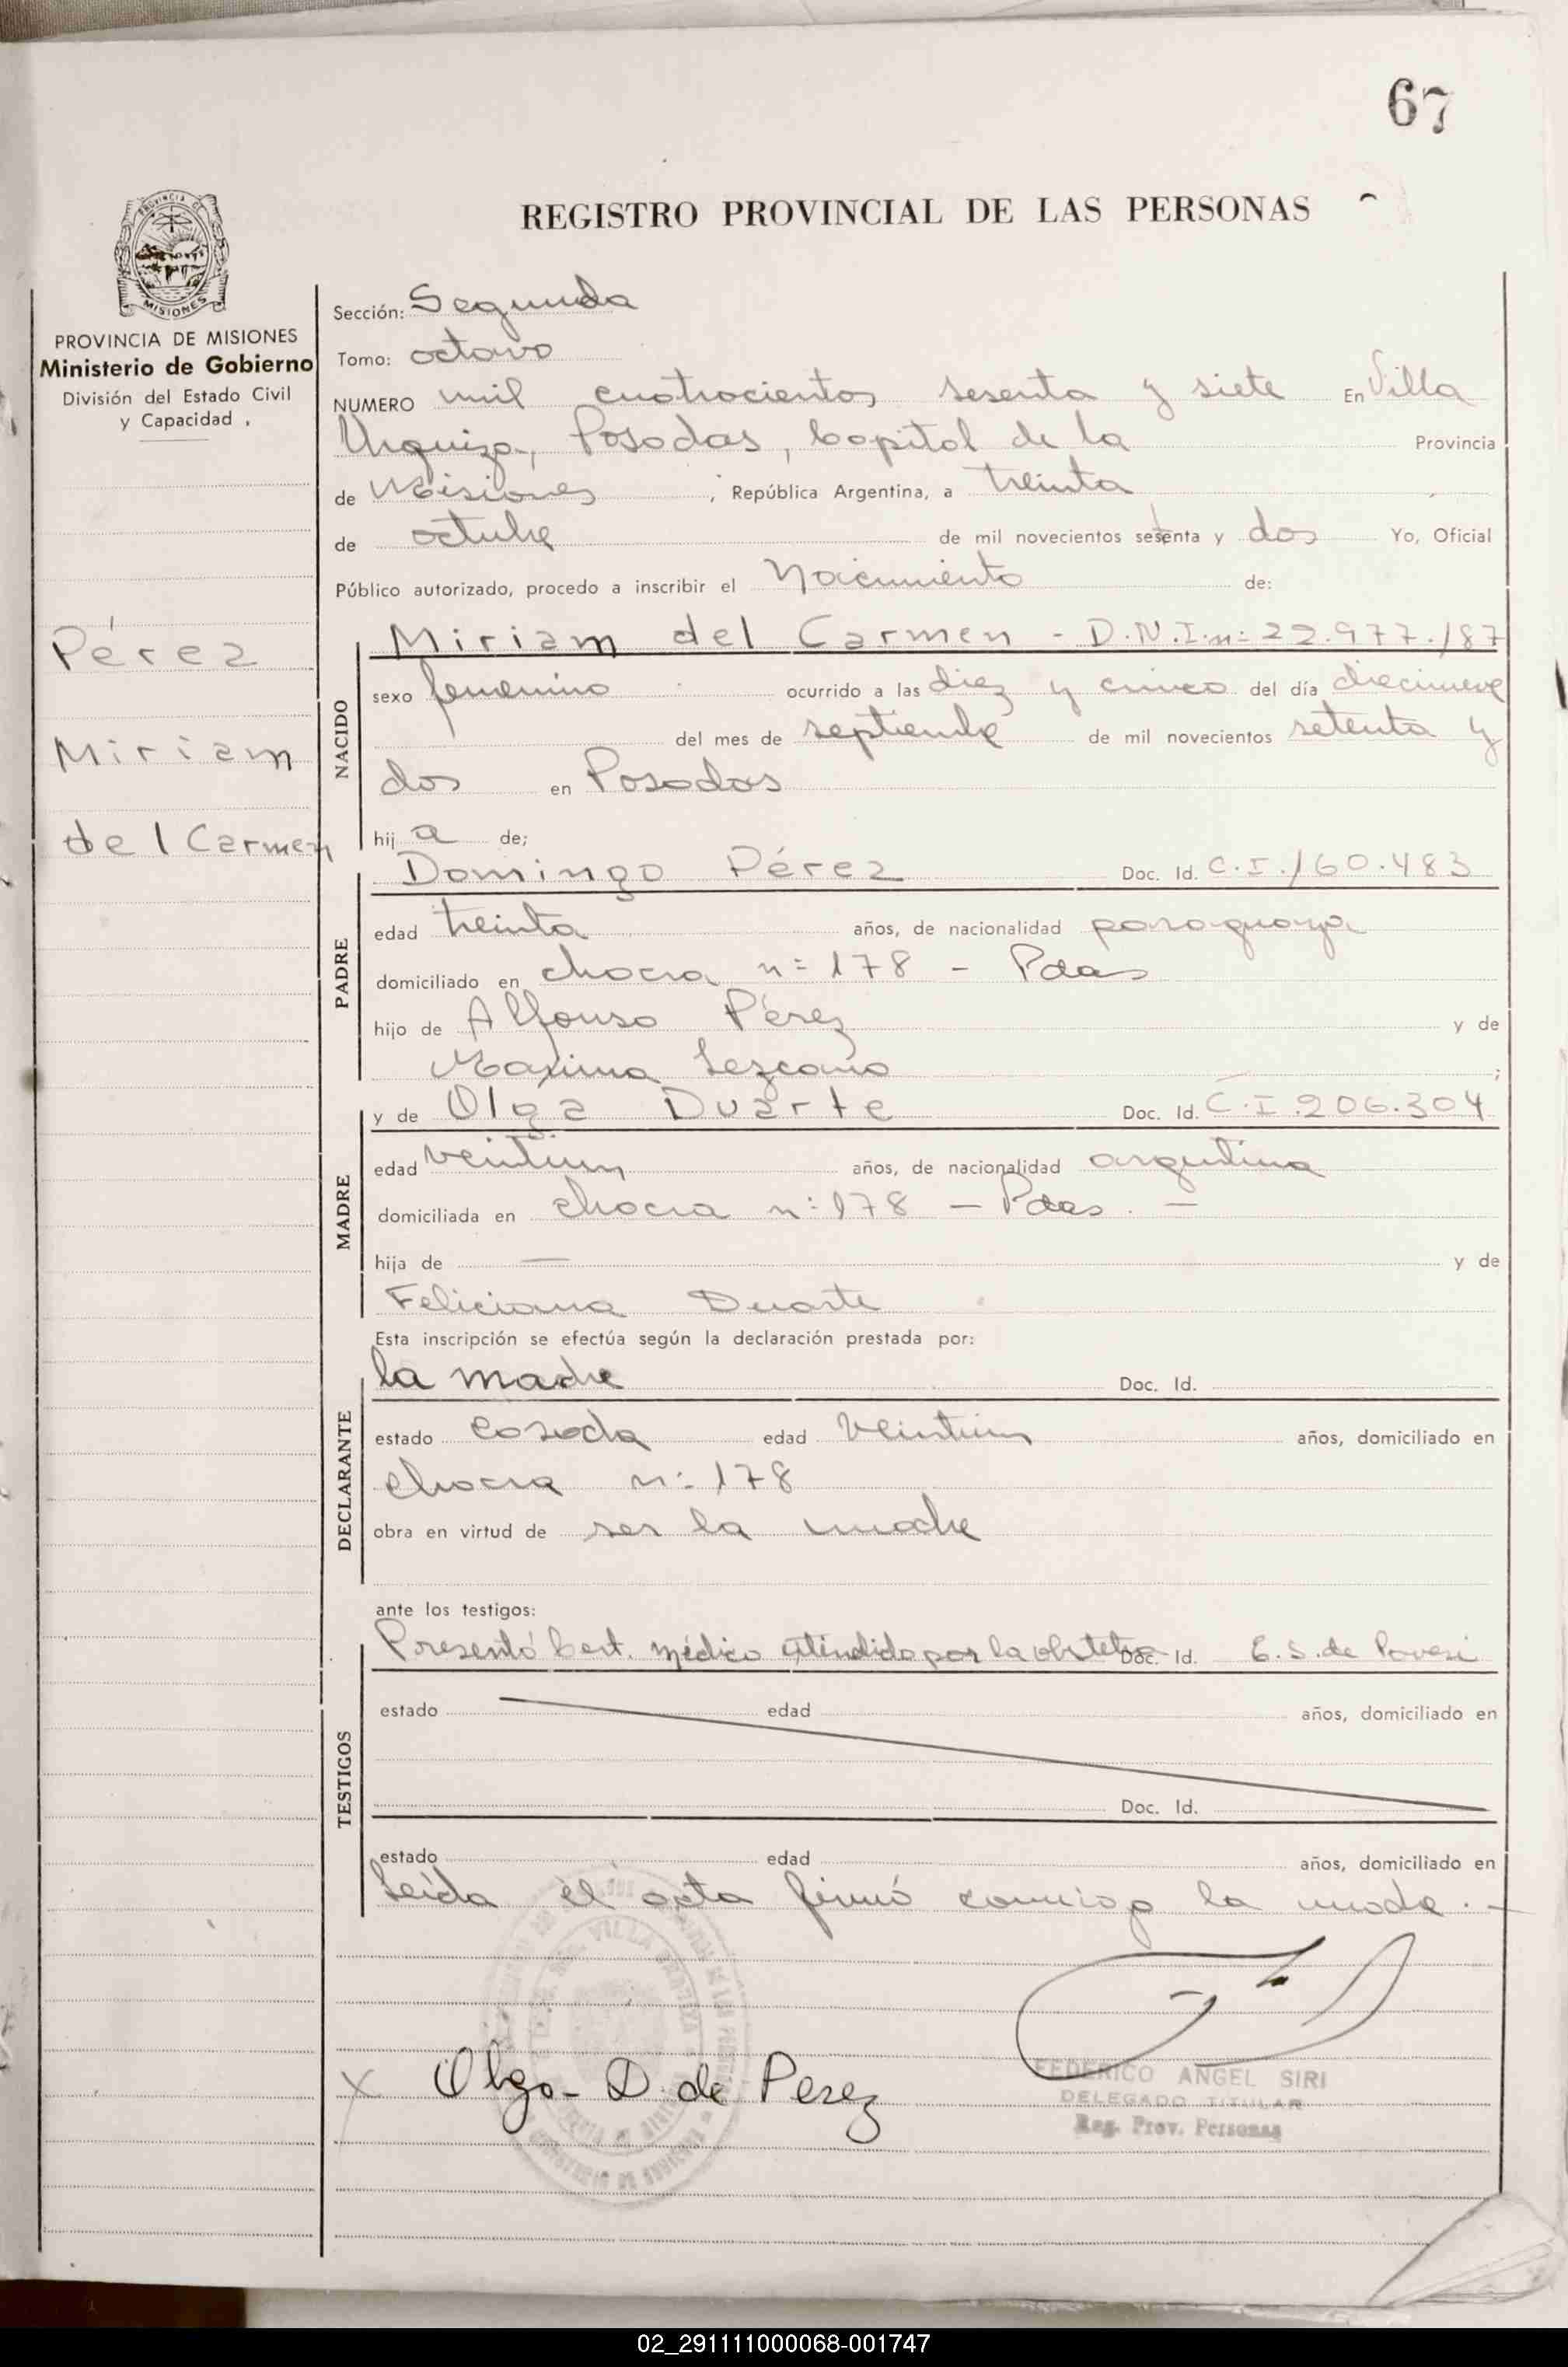 67
REGISTRO PROVINCIAL DE LAS PERSONAS
PROVINCIA DE
MISIONES
PROVINCIA DE MISIONES
Ministerio de Gobierno
División del Estado Civil
y Capacidad
Pérez
Miriam
del Carmen
Sección: Segunda
Tomo: octavo
NUMERO mil cuatrocientos sesenta y siete En Villa
Urquiza, Posadas, Capital de la Provincia
de Misiones, República Argentina, a treinta
de octubre de mil novecientos setenta y dos Yo, Oficial
Público autorizado, procedo a inscribir el Nacimiento de:
NACIDO
Miriam del Carmen - D.N.I. n: 22.977.187
sexo femenino ocurrido a las diez y cinco del día diecinueve
del mes de septiembre de mil novecientos setenta y
dos en Posadas
hij a de;
PADRE
Domingo Pérez Doc. Id. C.I. 160.483
edad treinta años, de nacionalidad paraguaya
domiciliado en chacra n: 178 - Pdas
hijo de Alfonso Pérez y de
Maxima Lezcano ;
MADRE
y de Olga Duarte Doc. Id. C.I. 206.304
edad veintiun años, de nacionalidad argentina
domiciliada en chacra n: 178 - Pdas. -
hija de — y de
Feliciana Duarte
Esta inscripción se efectúa según la declaración prestada por:
DECLARANTE
la madre Doc. Id.
estado casada edad veintiun años, domiciliado en
chacra n: 178
obra en virtud de ser la madre
ante los testigos:
TESTIGOS
Presentó Cert. médico atendida por la obstetra Doc. Id. E. S. de
estado edad años, domiciliado en
Doc. Id.
estado edad años, domiciliado en
Leída el acta firmó conmigo la madre. -
VILLA URQUIZA
X Olga D. de Perez
FEDERICO ANGEL SIRI
DELEGADO TITULAR
Reg. Prov. Personas
02_291111000068-001747